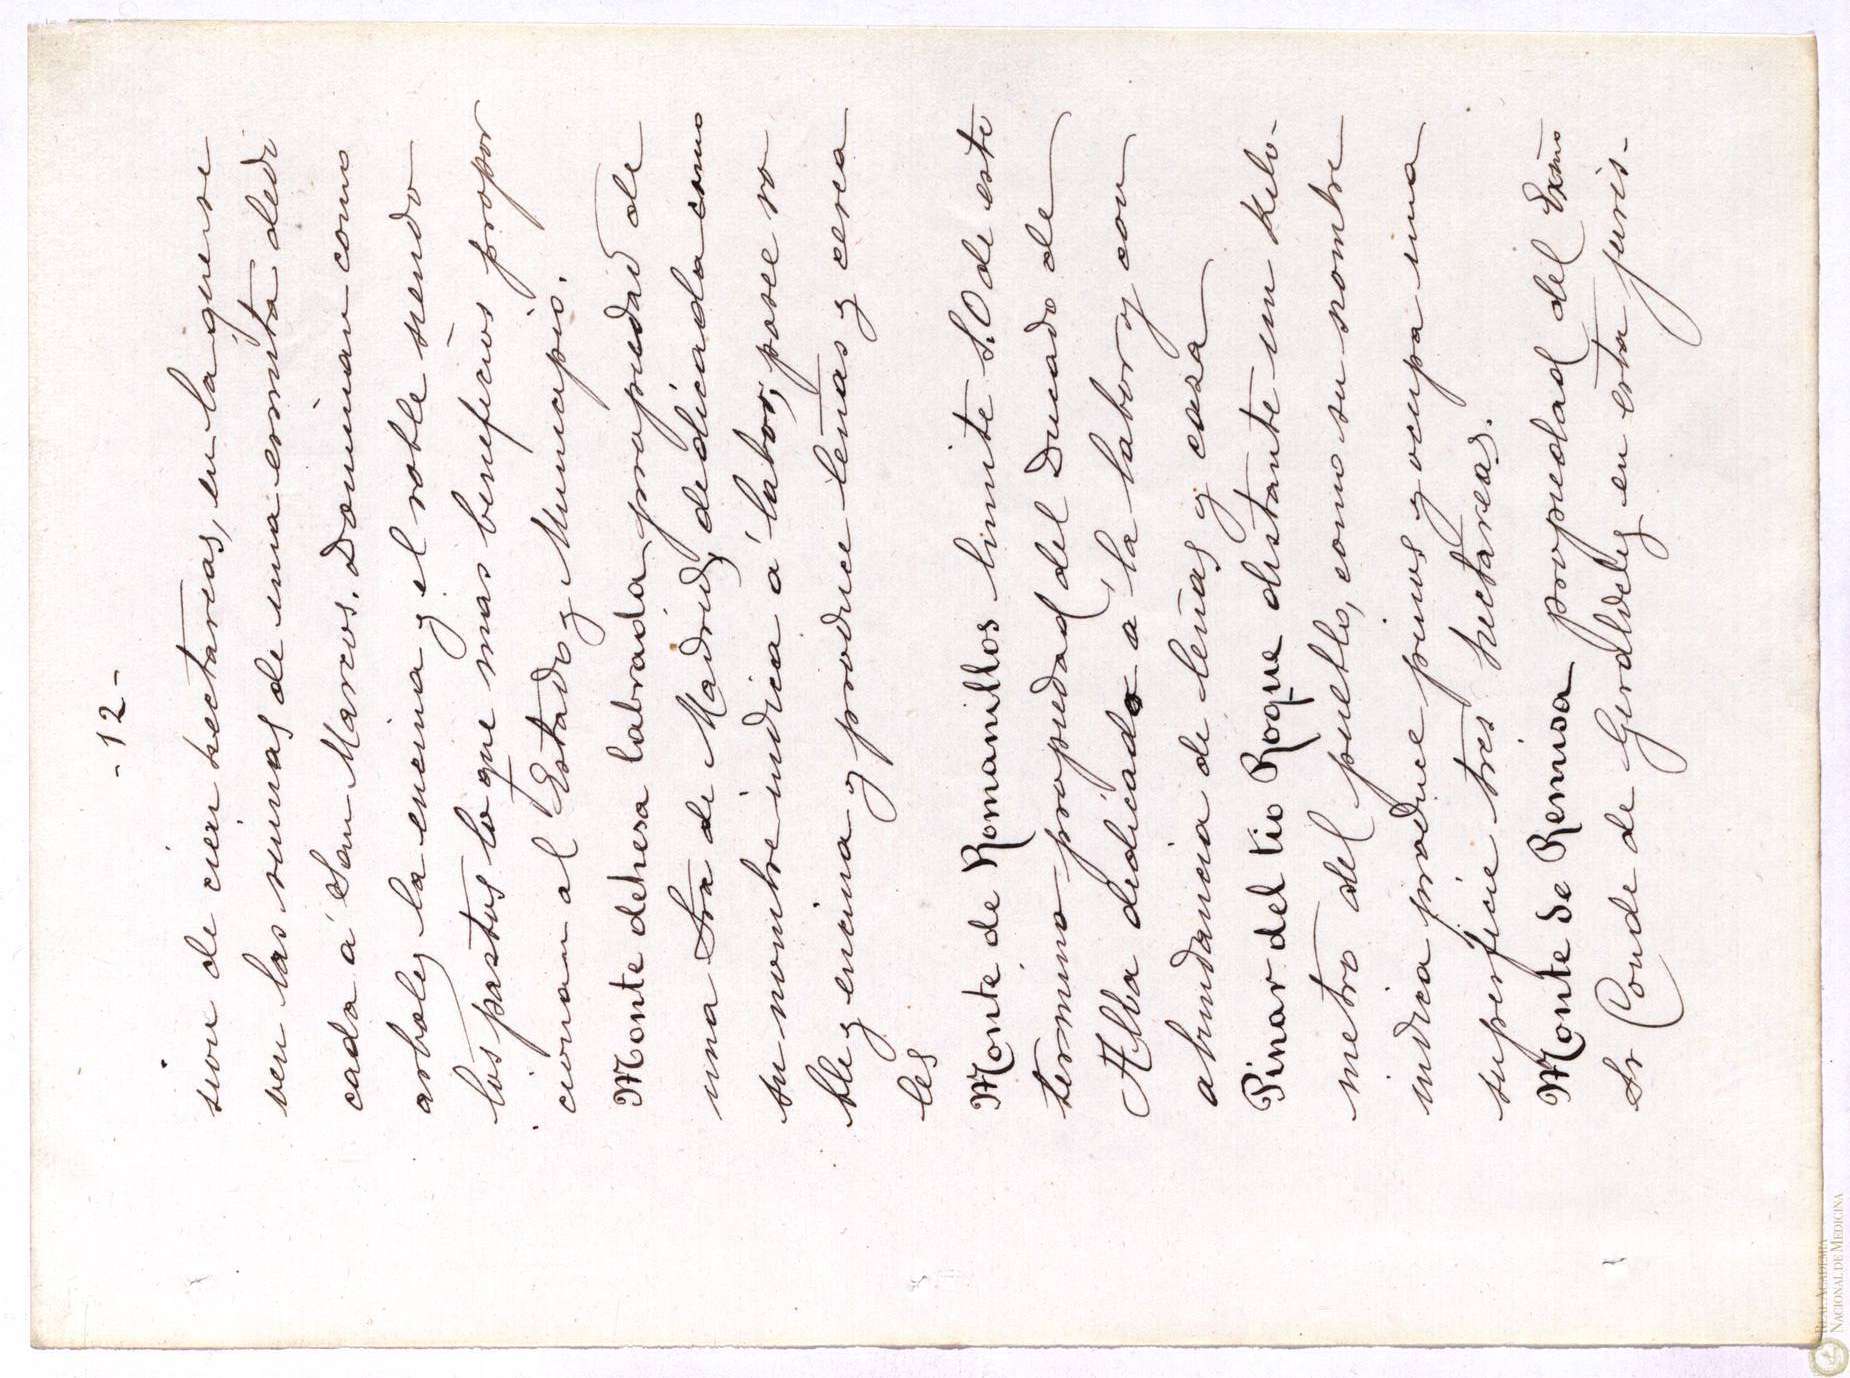 -12-
sion de cien hectareas, en la que se
ven las ruinas de una ermita dedi
cada á San Marcos. Dominan como
arboles la encina y el roble siendo
los pastos lo que mas beneficios propor
cionan al Estado y Municipio.
Monte dehesa labrada propiedad de
una Sra de Madrid, dedicada como
su nombre indica á labor, posee ro
ble y encina y produce leñas y cerea
les
Monte de Romanillos limite S.O de este
termino propiedad del Ducado de
Alba dedicado á la labor y con
abundancia de leñas y caza
Pinar del tio Roque distante un kilo-
metro del pueblo, como su nombre
indica produce pinos y ocupa una
superficie tres hectareas.
Monte de Remisa propiedad del Exmo
Sr Conde de en esta juris-
REAL ACADEMIA
NACIONAL DE MEDICINA